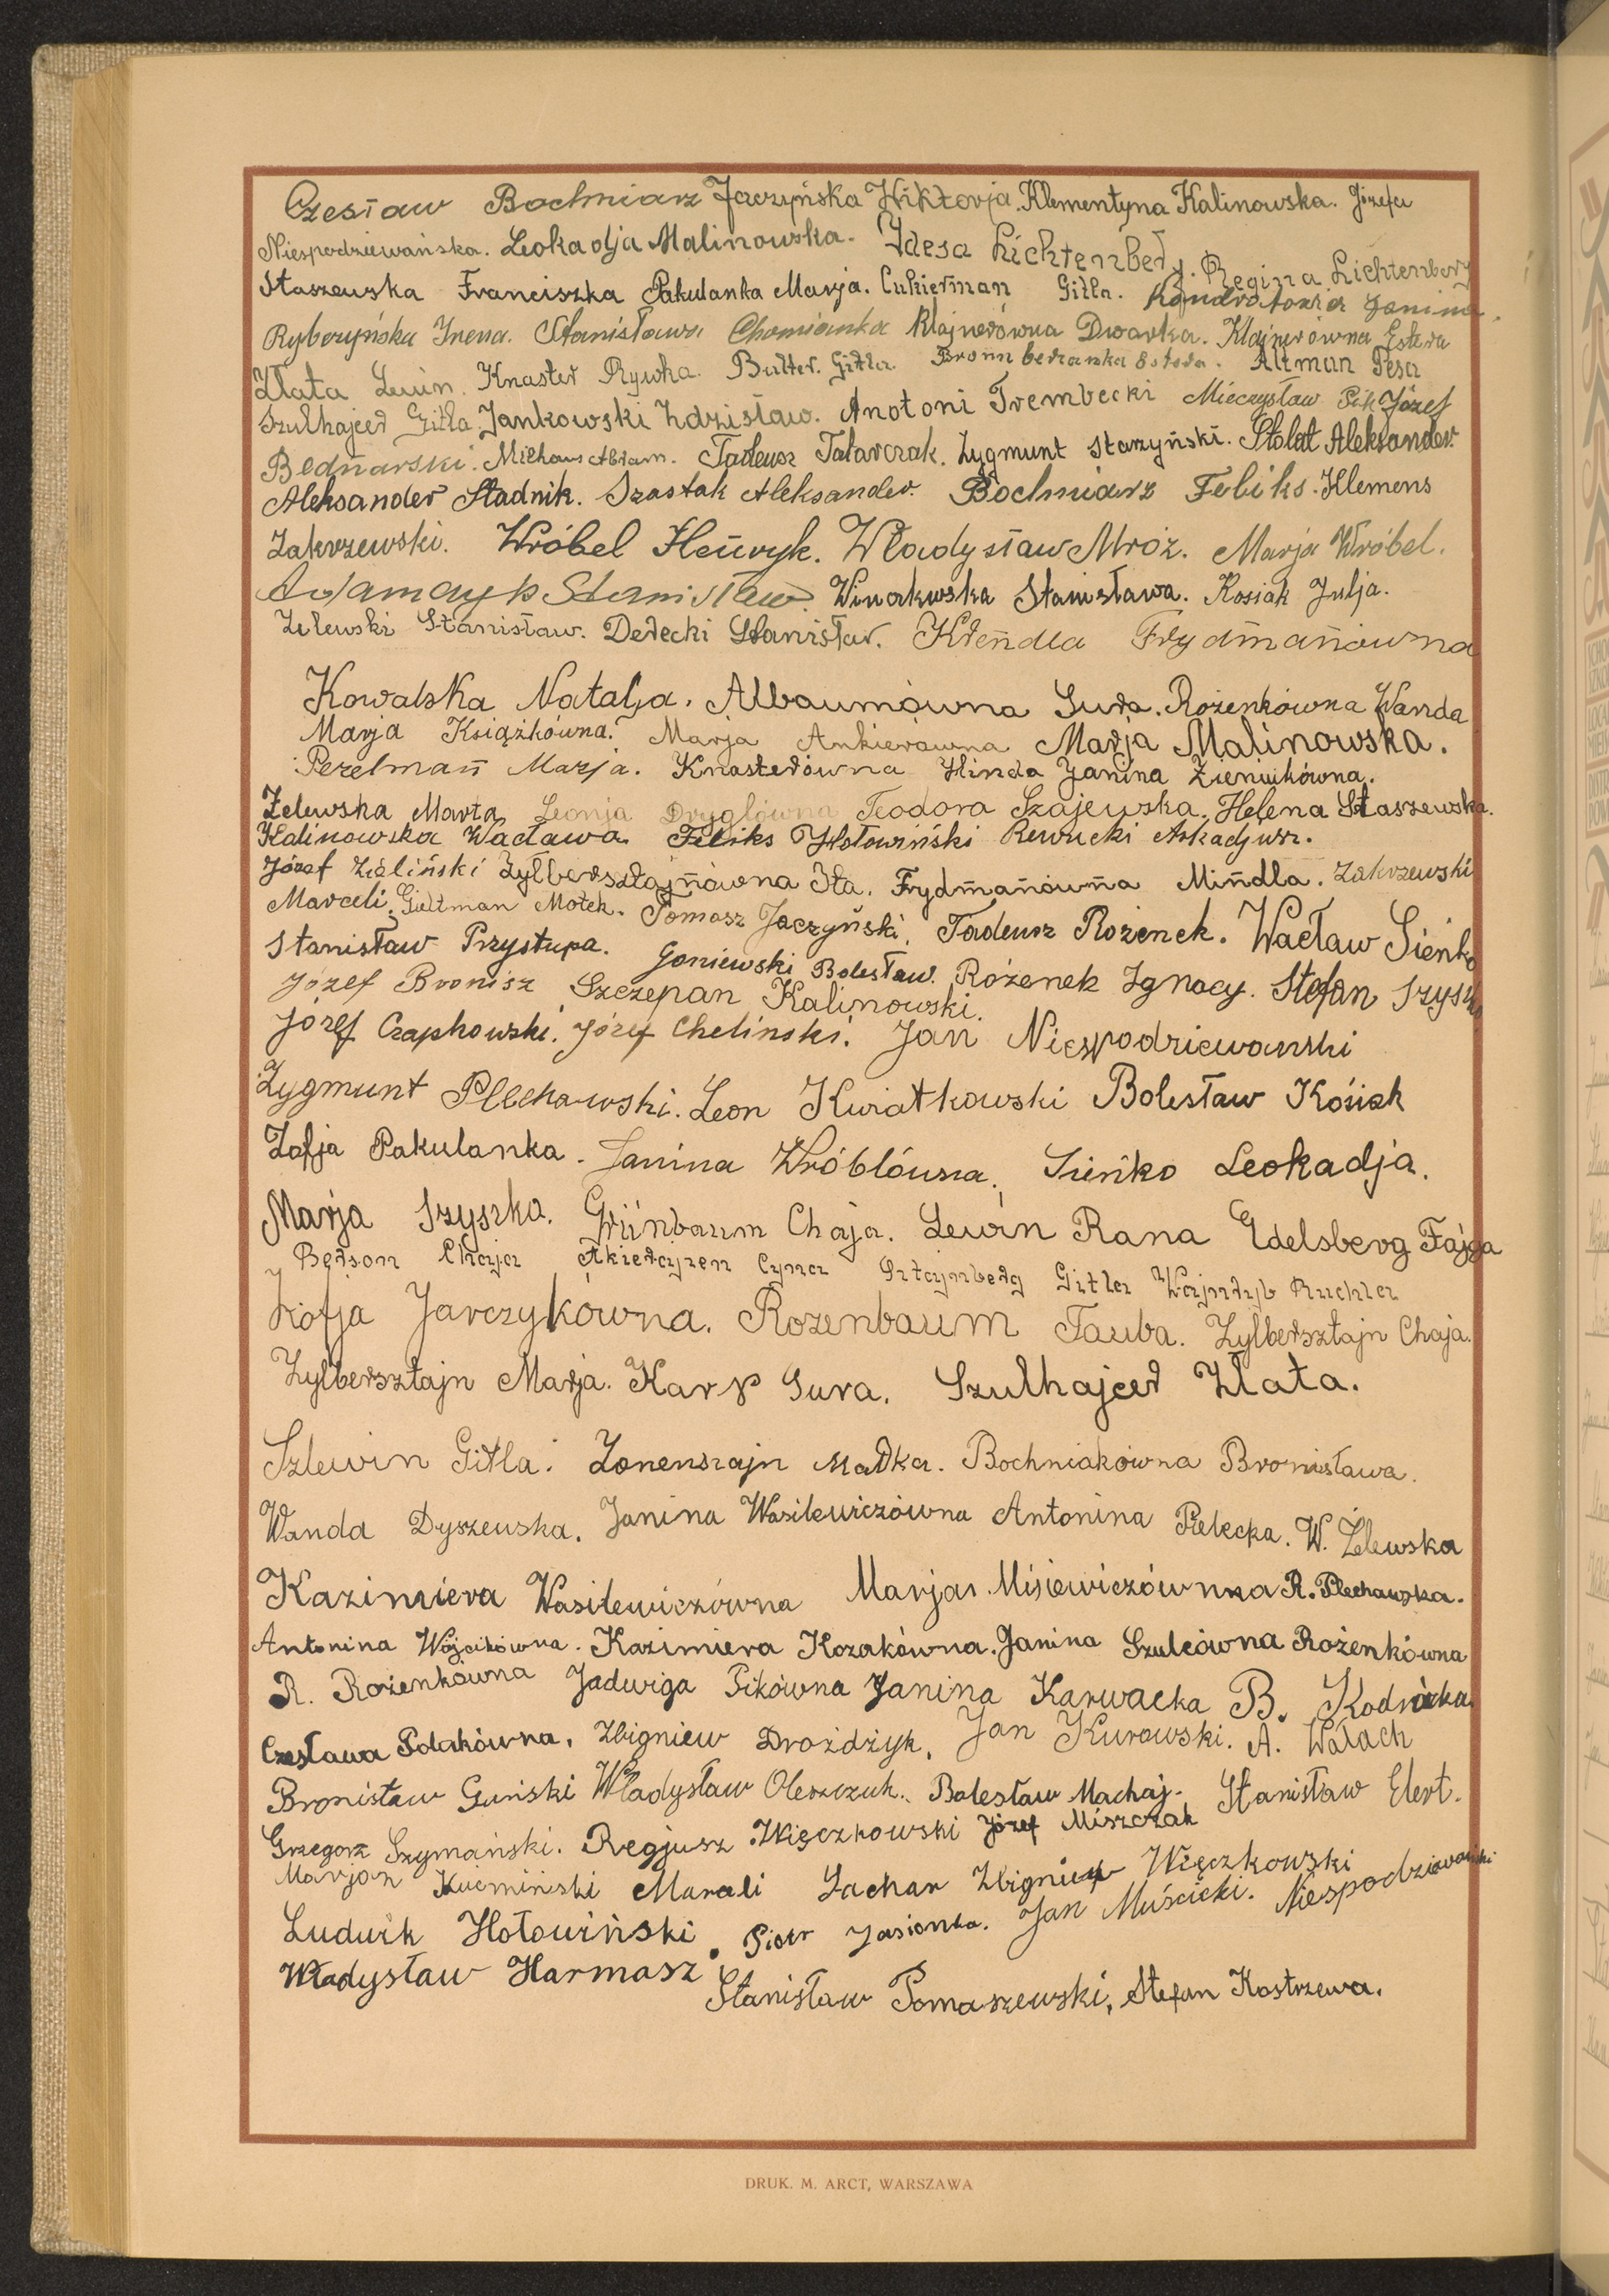 Czesław Bochniarz Jaczyńska Wiktorja. Klementyna Kalinowska. Józefa
Niespodziewańska. Leokadja Malinowska. Idesa Lichtenberg. Regina Lichtenberg
Staszewska Franciszka Pakulanka Marja. Cukierman Gitla. Kondratowicz Janina.
Rybczyńska Irena. Stanisława Chomianka Klajnerówna Dwarka. Klajnerówna Estera
Złata Lewin. Knaster Rywka. Bulter. Gitla. Altman Pesa
Szulhajcer Gitla. Jankowski Zdzisław. Anotoni Trembecki Mieczysław Pik Józef
Bednarski. Abram. Tadeusz Tatarczak. Zygmunt Starzyński. Stolat Aleksander.
Aleksander Stadnik. Szostak Aleksander. Bochniarz Feliks. Klemens
Zakrzewski. Wróbel Henryk. Władysław Mróz. Marja Wróbel.
Adamczyk Stanisław. Stanisława. Kosiak Julja.
Zelewski Stanisław. Derecki Stanisław. Krendla Frydmanówna
Kowalska Natalja. Albaumówna Sura. Rożenkówna Wanda
Marja Książkówna. Marja Ankierówna Marja Malinowska.
Perelman Marja. Knasterówna Hinda Janina Zieniukówna.
Żelewska Marta Leonja Dryglówna Teodora Szajewska. Helena Staszewska.
Kalinowska Wacława. Feliks Hołowiński Rewucki Arkadjusz.
Józef Zieliński Zylbersztajnówna Ita. Frydmanówna Mindla. Zakrzewski
Marceli. Gutman Motek. Tomasz Jaczyński. Tadeusz Rożenek. Wacław Sieńko
Stanisław Przystupa. Goniewski Bolesław. Rożenek Ignacy. Stefan Szysz
Józef Bronisz Szczepan Kalinowski.
Józef Czapkowski. Józef Cheliński. Jan Niespodziewański
Zygmunt Plechawski. Leon Kwiatkowski Bolesław Kosiak
Zofja Pakulanka. Janina Wróblówna. Sieńko Leokadja.
Marja Szyszko. Grünbaum Chaja. Lewin Rana Edelsberg Fajga
Berson Chaja Cyna Sztajnberg Gitla Wajnryb Ruchla
Zofja Jarczykówna. Rozenbaum Tauba. Zylbersztajn Chaja.
Zylbersztajn Marja. Karp Sura. Szulhajcer Złata.
Szlewin Gitla. Zonenszajn Małka. Bochniakówna Bronisława.
Wanda Dyszewska. Janina Wasilewiczówna Antonina Pielecka. W. Żelewska
Kazimiera Wasilewiczówna Marja Misiewiczówna R. Plechawska.
Antonina Wójcikówna. Kazimiera Kozakówna. Janina Szulcówna Rożenkówna
R. Rożenkówna Jadwiga Pikówna Janina Karwacka B. Kodnicka
Czesława Polakówna. Zbigniew Drożdżyk. Jan Kurowski. A. Wałach
Bronisław Guński Władysław Oleszczuk. Bolesław Machaj. Stanisław Elert.
Grzegorz Szymański. Regjusz Więczkowski Józef Miszczak
Marjan Kuźmiński Marceli Lachar Zbigniew Więczkowski
Ludwik Hołowiński. Piotr Jasionka. Jan Muścicki. Niespodziewański
Władysław Harmasz Stanisław Pomaszewski. Stefan Kostrzewa.
DRUK. M. ARCT, WARSZAWA